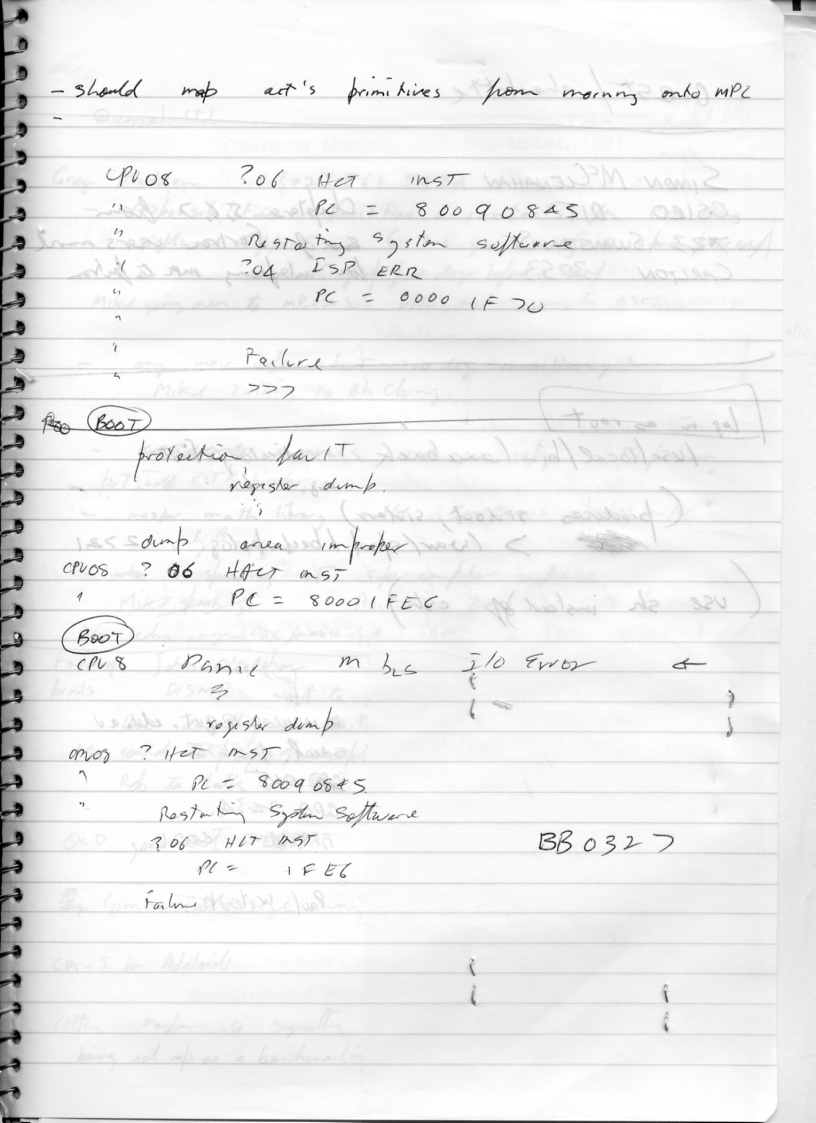 - should map act's primitives from morning onto MPL
-
CPU08 ?06 HLT INST
" PC = 80090845
" Restarting system software
" ?04 ISP ERR
" PC = 0000 1F70
"
" Failure
" >>>
BOOT
protection fault
register dump
dump area improper
CPU08 ? 06 HALT INST
" PC = 80001FE6
BOOT
CPU 8 Panic I/O Error ←
register dump
CPU08 ? HLT INST
" PC = 80090845
" Restarting System Software
? 06 HLT INST
PC = 1FE6
Failure
BB0327